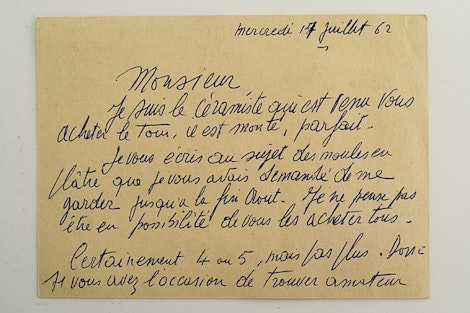 mercredi 17 juillet 62
Monsieur
Je suis le céramiste qui est venu vous
acheter le tour, il est monté, parfait.
Je vous écris au sujet des moules en
plâtre que je vous avais demandé de me
garder jusqu'à la fin Aout. Je ne pense pas
être en possibilité de vous les acheter tous.
Certainement 4 ou 5, mais pas plus. Donc
si vous avez l'occasion de trouver amateur